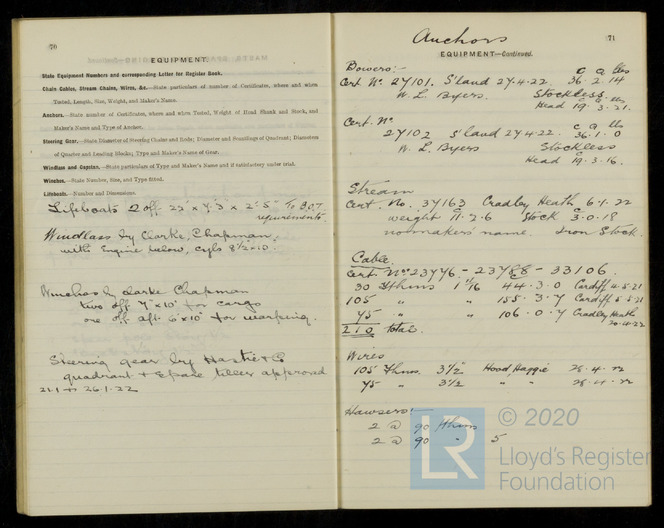 70
EQUIPMENT.
State Equipment Numbers and corresponding Letter for Register Book.
Chain Cables, Stream Chains, Wires, &c.—State particulars of number of Certificates, where and when
Tested, Length, Size, Weight, and Maker's Name.
Anchors.—State number of Certificates, where and when Tested, Weight of Head Shank and Stock, and
Maker's Name and Type of Anchor.
Steering Gear.—State Diameter of Steering Chains and Rods; Diameter and Soundings of Quadrant; Diameters
of Quarter and Leading Blocks; Type and Maker's Name of Gear.
Windlass and Capstan.—State particulars of Type and Maker's Name and if satisfactory under trial.
Winches.—State Number, Size, and Type fitted.
Lifeboats.—Number and Dimensions.
Lifeboats 2 off 22' x 7'.3" x 2'.5" To B.O.T
requirements.
Windlass by Clarke, Chapman,
with Engine below, cyls 8½" x 10".
Winches by Clarke Chapman
two off 7" x 10" for cargo
one off aft 6" x 10" for warping.
Steering gear by Hastie & Co
quadrant & Spare tiller approved
26.1.22
71
Anchors
EQUIPMENT—Continued.
Bowers:-
c q lbs
Cert No. 27101. S'land 27.4.22. 36.2.14
W. L. Byers. Stockless
c q lbs
Head 19.3.21.
Cert. No
c q lbs
27102 S'land 27.4.22. 36.1.0
W. L. Byers Stockless
Head 19.3.16.
Stream
Cert. No. 37163 Cradley Heath 6.1.22
weight 11.2.6 Stock 3.0.18
no makers' name. Iron Stock.
Cable.
Cert. Nos 23776 - - 33106.
30 fthms 1 11/16 44.3.0 Cardiff 4.5.21
105 " " 155.3.7 Cardiff 5.5.21
75 " " 106.0.7 Cradley Heath
20.4.22
210 total.
Wires
105 fthms. 3½" Hood Haggie 28.4.22
75 " 3½ " " 28.4.22
Hawsers:-
2 @ 90 fthms
2 @ 90 " 5
LR
© 2020
Lloyd's Register
Foundation